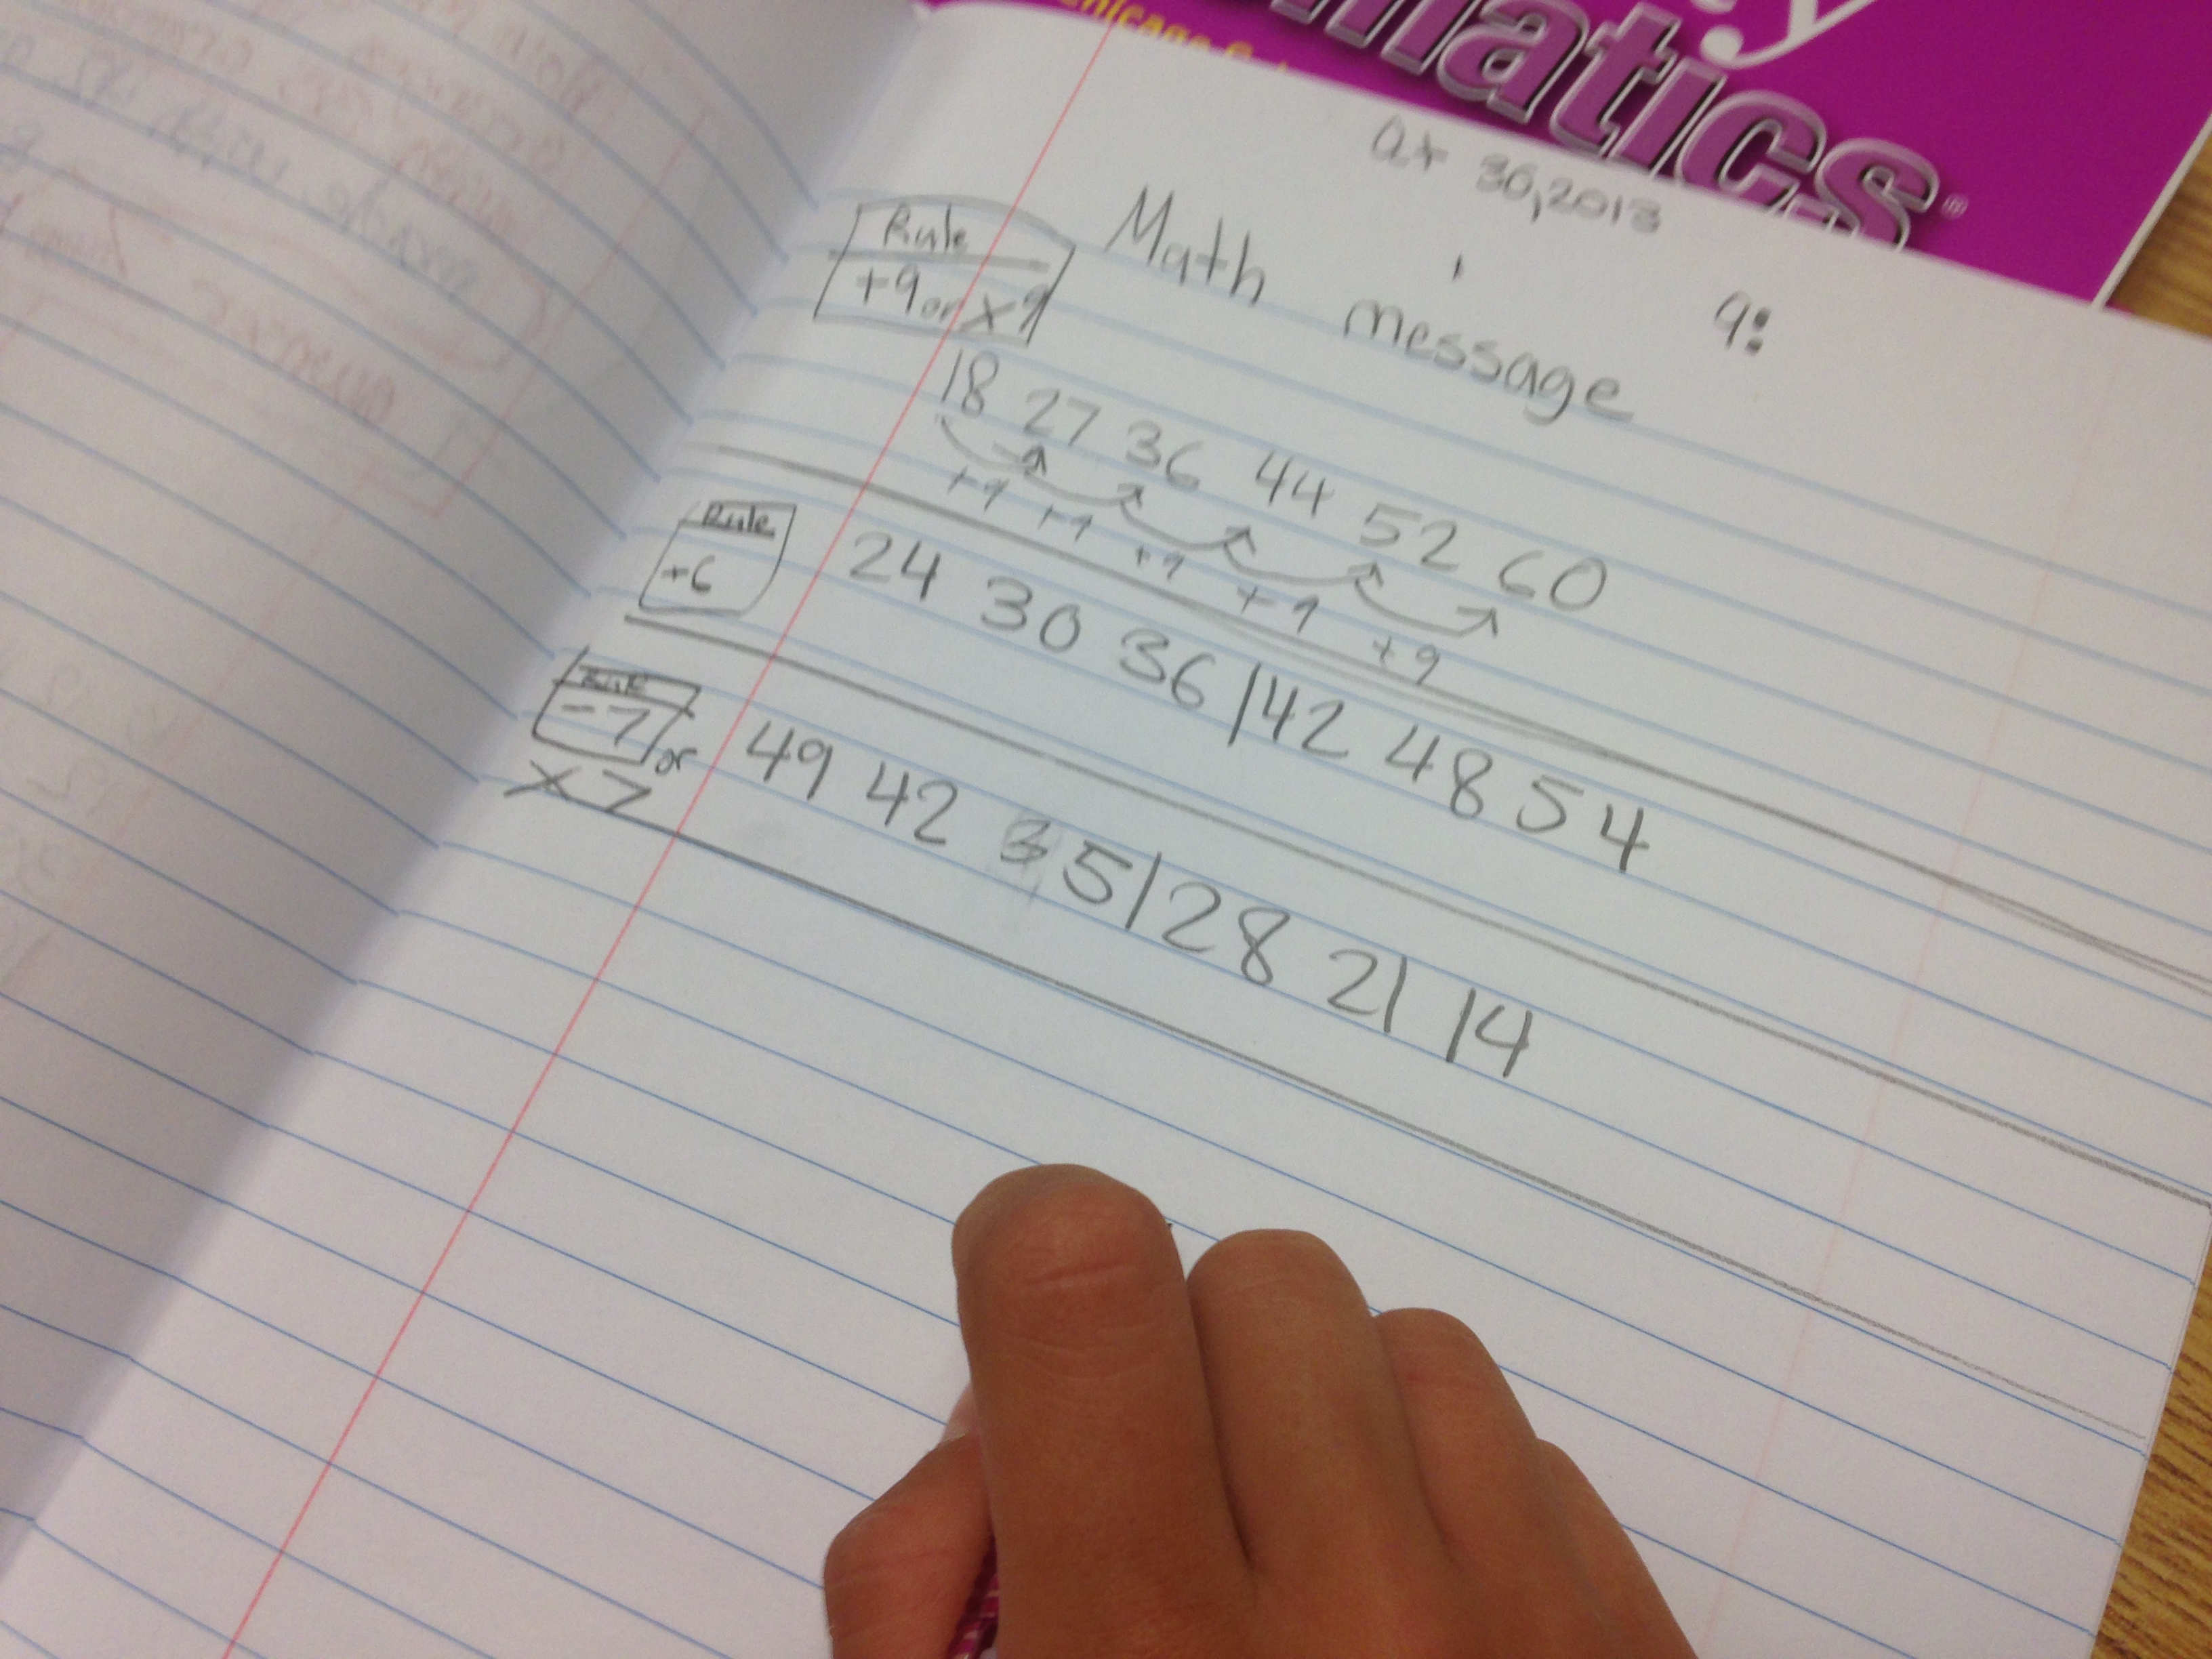 matics®
Oct 30, 2013
Math message 9:
Rule
+9 or x9
18 27 36 44 52 60
+9 +9 +9 +9 +9
Rule
+6
24 30 36 / 42 48 54
Rule
-7 or
x7
49 42 35 / 28 21 14